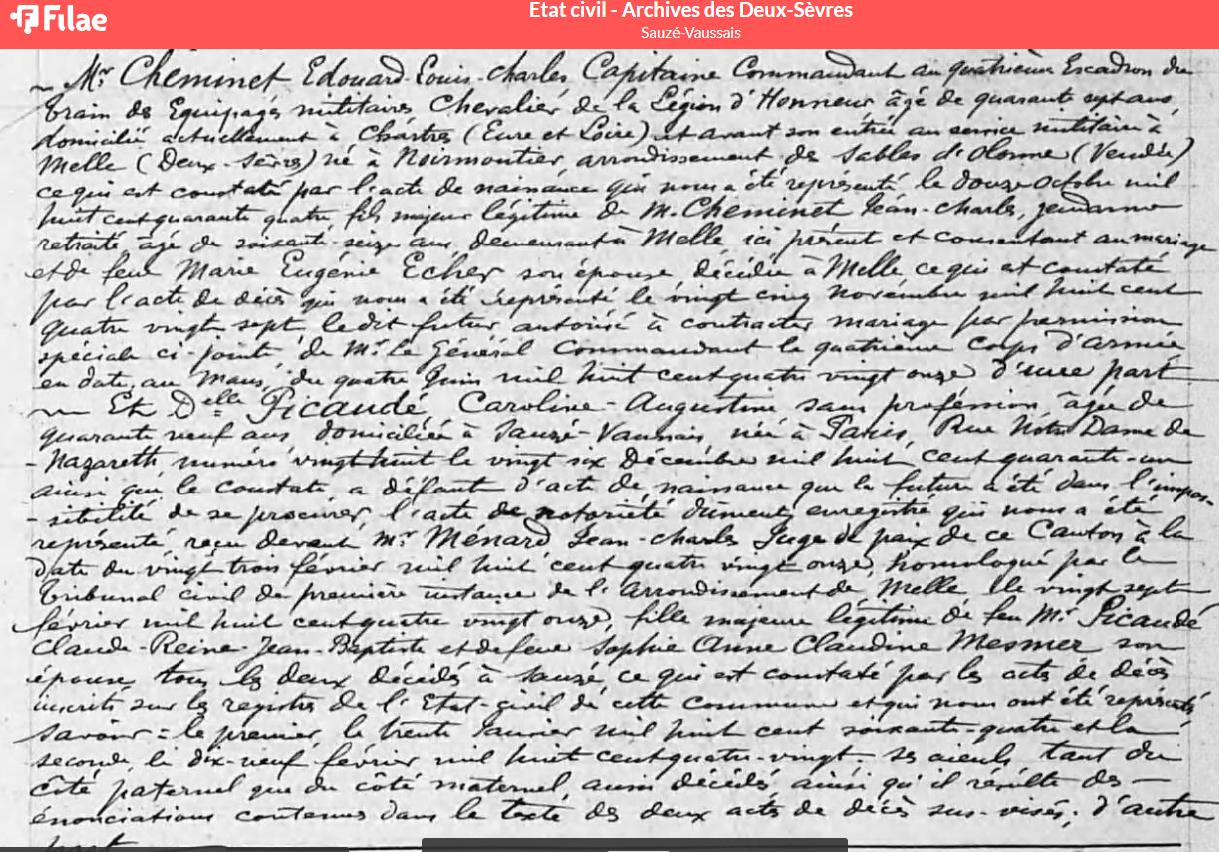 Filae
Etat civil - Archives des Deux-Sèvres
Sauzé-Vaussais
Mr Cheminet Edouard-Louis-Charles, Capitaine Commandant au quatrième Escadron du
train des Equipages militaires Chevalier de la Légion d'Honneur âgé de quarante sept ans,
domicilié actuellement à Chartres (Eure et Loire) et avant son entrée au service militaire à
Melle (Deux-Sèvres) né à Noirmoutier arrondissement des Sables d'Olonne (Vendée)
ce qui est constaté par l'acte de naissance qui nous a été représenté le douze Octobre mil
huit cent quarante quatre fils majeur légitime de M. Cheminet Jean-Charles, gendarme
retraité âgé de soixante-seize ans demeurant à Melle, ici présent et consentant au mariage
et de feue Marie Eugénie Echer son épouse décédée à Melle ce qui est constaté
par l'acte de décès qui nous a été représenté le vingt cinq novembre mil huit cent
quatre vingt sept, ledit futur autorisé à contracter mariage par permission
spéciale ci-jointe de Mr Le Général Commandant le quatrième Corps d'armée
en date, au Mans, du quatre Juin mil huit cent quatre vingt onze, d'une part
Et Delle Picaudé, Caroline-Augustine sans profession, âgée de
quarante neuf ans domiciliée à Sauzé-Vaussais, née à Paris, Rue Notre Dame de
Nazareth, numéro vingt huit le vingt six Décembre mil huit cent quarante-un
ainsi que le constate, a défaut d'acte de naissance que la future a été dans l'impos-
-sibilité de se procurer, l'acte de notoriété dument enregistré qui nous a été
représenté reçu devant Mr Ménard Jean-Charles Juge de paix de ce Canton à la
date du vingt trois février mil huit cent quatre vingt onze, homologué par le
Tribunal civil de première instance de l'Arrondissement de Melle, le vingt sept
février mil huit cent quatre vingt onze, fille majeure légitime de feu Mr Picaudé
Claude-Reine-Jean-Baptiste et de feue Sophie Anne Claudine Mesmer son
épouse, tous les deux décédés à Sauzé ce qui est constaté par les actes de décès
inscrits sur les registres de l'Etat-civil de cette commune et qui nous ont été représentés,
Savoir = le premier, le trente Janvier mil huit cent soixante-quatre et la
seconde, le dix-neuf février mil huit cent quatre-vingt. Ses aïeuls, tant du
côté paternel que du côté maternel, aussi décédés, ainsi qu'il résulte des
énonciations contenues dans le texte des deux actes de décès sus-visés; d'autre
part